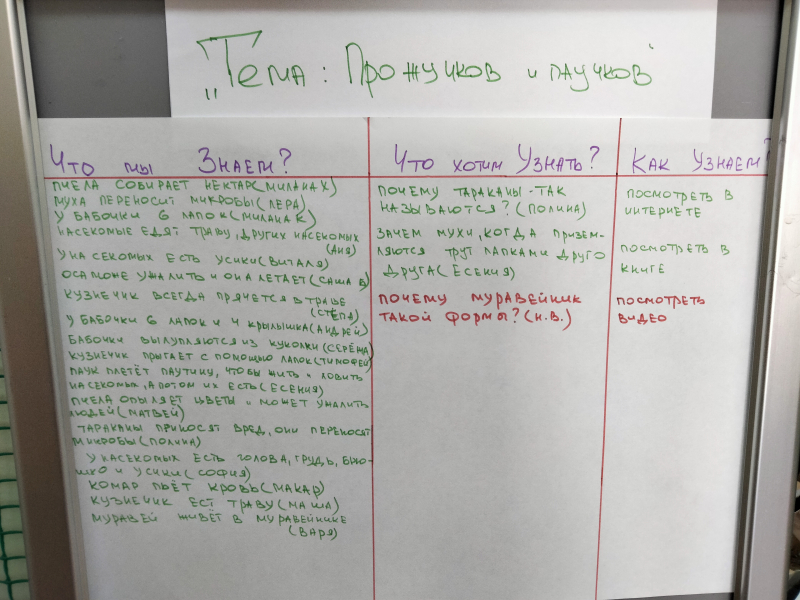 „Тема: Про жучков и паучков"
Что мы Знаем?
пчела собирает нектар(Милана Х)
муха переносит микробы(Лера)
у бабочки 6 лапок(Милана К)
насекомые едят траву, других насекомых
(Аня)
у насекомых есть усики(Виталя)
оса може ужалить и она летает(Саша В)
кузнечик всегда прячется в траве
(Стёпа)
у бабочки 6 лапок и 4 крылышка(Андрей)
бабочки вылупляются из куколки(Серёжа)
кузнечик прыгает с помощью лапок(Тимофей)
паук плетёт паутину, чтобы жить и ловить
насекомых, а потом их есть(Есения)
пчела опыляет цветы и может ужалить
людей(Матвей)
тараканы приносят вред, они переносят
микробы(Полина)
у насекомых есть голова, грудь, брю-
шко и усики(София)
комар пьёт кровь(Макар)
кузнечик ест траву(Маша)
муравей живёт в муравейнике
(Варя)
Что хотим Узнать?
почему тараканы-так
называются?(Полина)
зачем мухи, когда призем-
ляются трут лапками друго
друга(Есения)
почему муравейник
такой формы?(Н.В.)
Как Узнаем?
посмотреть в
интернете
посмотреть в
книге
посмотреть
видео